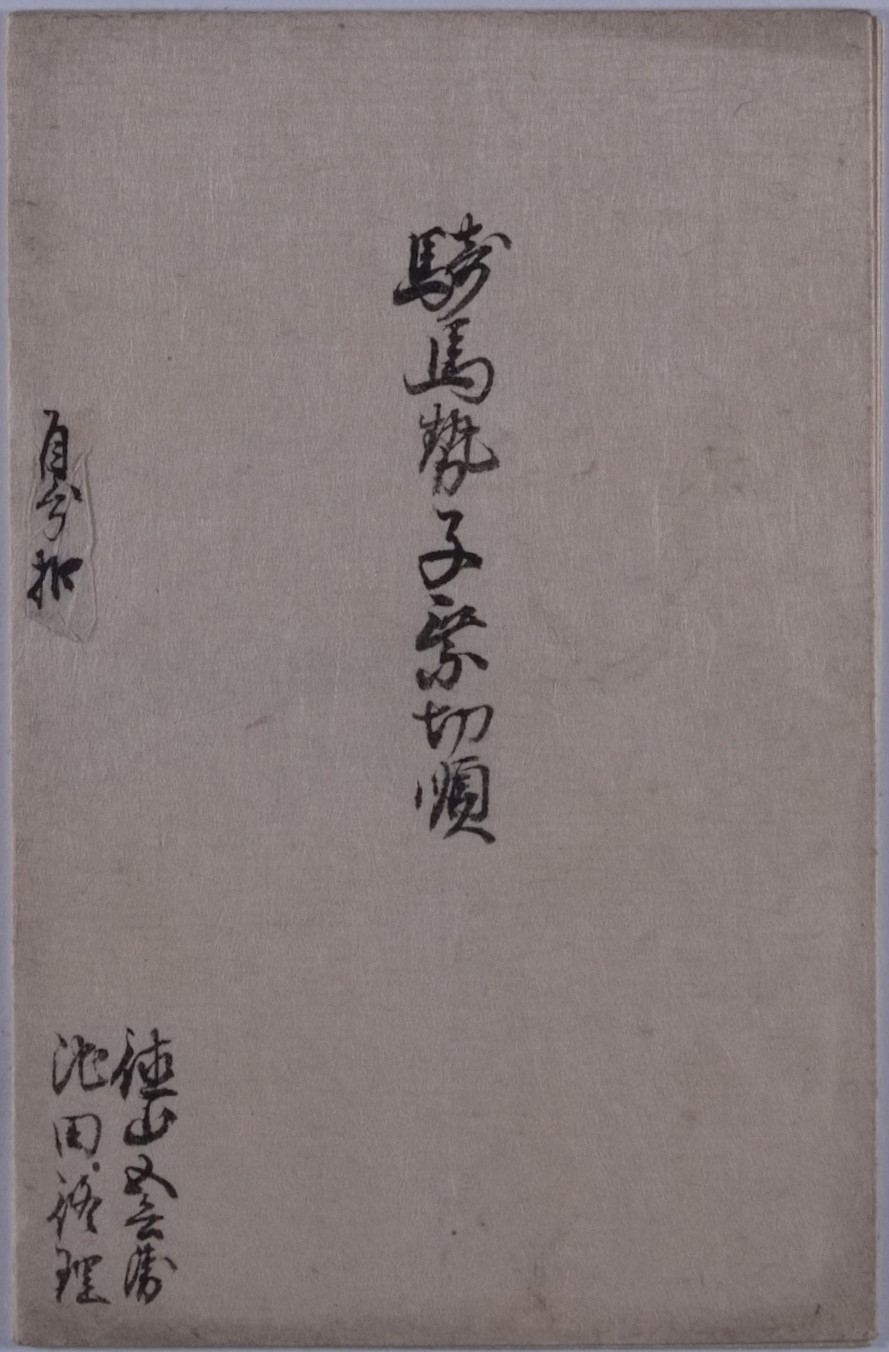 騎馬勢子乗切順
徳山五兵衛
池田修理
自分扣